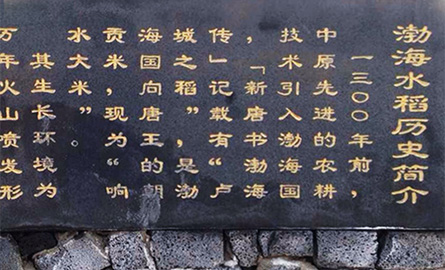 渤海水稻历史简介
一三〇〇年前，
中原先进的农耕
技术引入渤海国
，「新唐书渤海
传」记载有“卢
城之稻”，是渤
海国向唐王的朝
贡米，现为“响
水大米”。
其生长环境为
万年火山喷发形